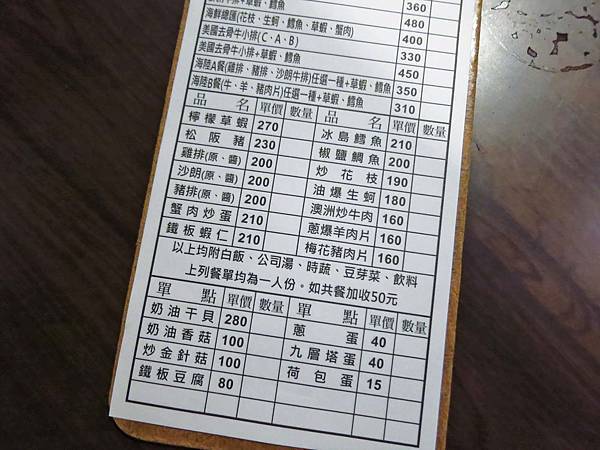 360
牛排+草蝦、鱈魚 480
海鮮總匯(花枝、生蚵、鱈魚、草蝦、蟹肉) 400
美國去骨牛小排(C、A、B) 330
美國去骨牛小排+草蝦、鱈魚 450
海陸A餐(雞排、豬排、沙朗牛排)任選一種+草蝦、鱈魚 350
海陸B餐(牛、羊、豬肉片)任選一種+草蝦、鱈魚 310
品名 單價 數量 品名 單價 數量
檸檬草蝦 270 冰島鱈魚 210
松阪豬 230 椒鹽鯛魚 200
雞排(原、醬) 200 炒花枝 190
沙朗(原、醬) 200 油爆生蚵 180
豬排(原、醬) 200 澳洲炒牛肉 160
蟹肉炒蛋 210 蔥爆羊肉片 160
鐵板蝦仁 210 梅花豬肉片 160
以上均附白飯、公司湯、時蔬、豆芽菜、飲料
上列餐單均為一人份。如共餐加收50元
單點 單價 數量 單點 單價 數量
奶油干貝 280 蔥蛋 40
奶油香菇 100 九層塔蛋 40
炒金針菇 100 荷包蛋 15
鐵板豆腐 80